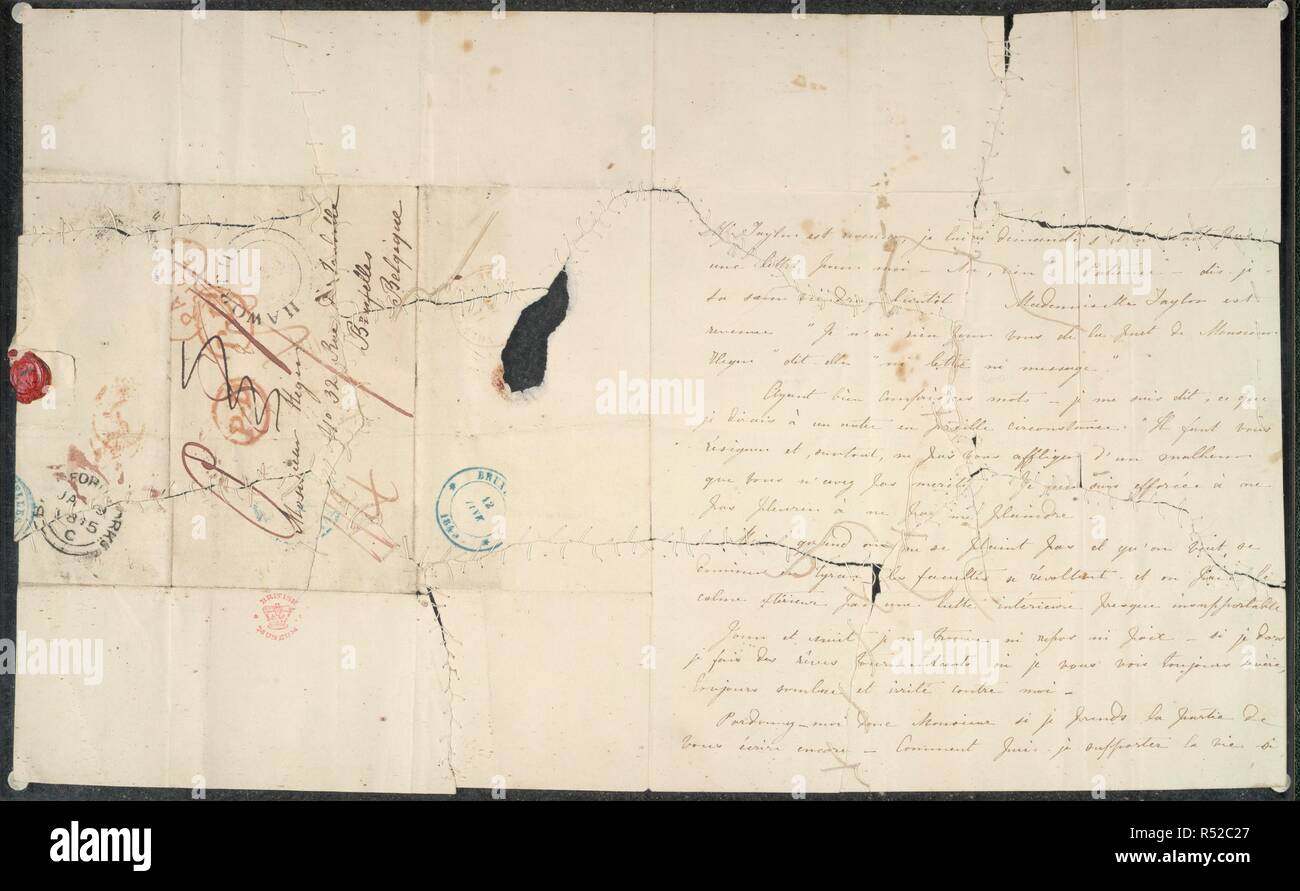 Monsieur Heger
No 32 Rue d'Isabelle
Bruxelles
Belgique
HAWO
PAID
JA
1845
C
BRUX
12
1845
BRITISH
MUSEUM
Mr Taylor est revenu, je lui ai demandé s'il n'avait pas
une lettre pour moi – Non, rien" "Patience – dis-je –
sa sœur viendra bientôt Mademoiselle Taylor est
revenue "Je n'ai rien pour vous de la part de Monsieur
Heger" dit-elle "ni lettre ni message"
Ayant bien compris ces mots – je me suis dit, ce que
je dirais à un autre en pareille circonstance "Il faut vous
résigner et, surtout, ne pas vous affliger d'un malheur
que vous n'avez pas mérité" Je me suis efforcée à ne
pas pleurer à ne pas me plaindre –
Mais quand on ne se plaint pas et qu'on veut se
en tyran – les facultés se révoltent et on paie le
calme extérieur par une lutte intérieure presque insupportable
Jour et nuit je ne trouve ni repos ni paix – si je dors
je fais des rêves tourmentants où je vous vois toujours sévère,
toujours sombre et irrité contre moi –
Pardonnez-moi donc Monsieur si je prends la partie de
vous écrire encore – Comment puis-je supporter la vie si
alamy
Image ID: R52C27
www.alamy.com